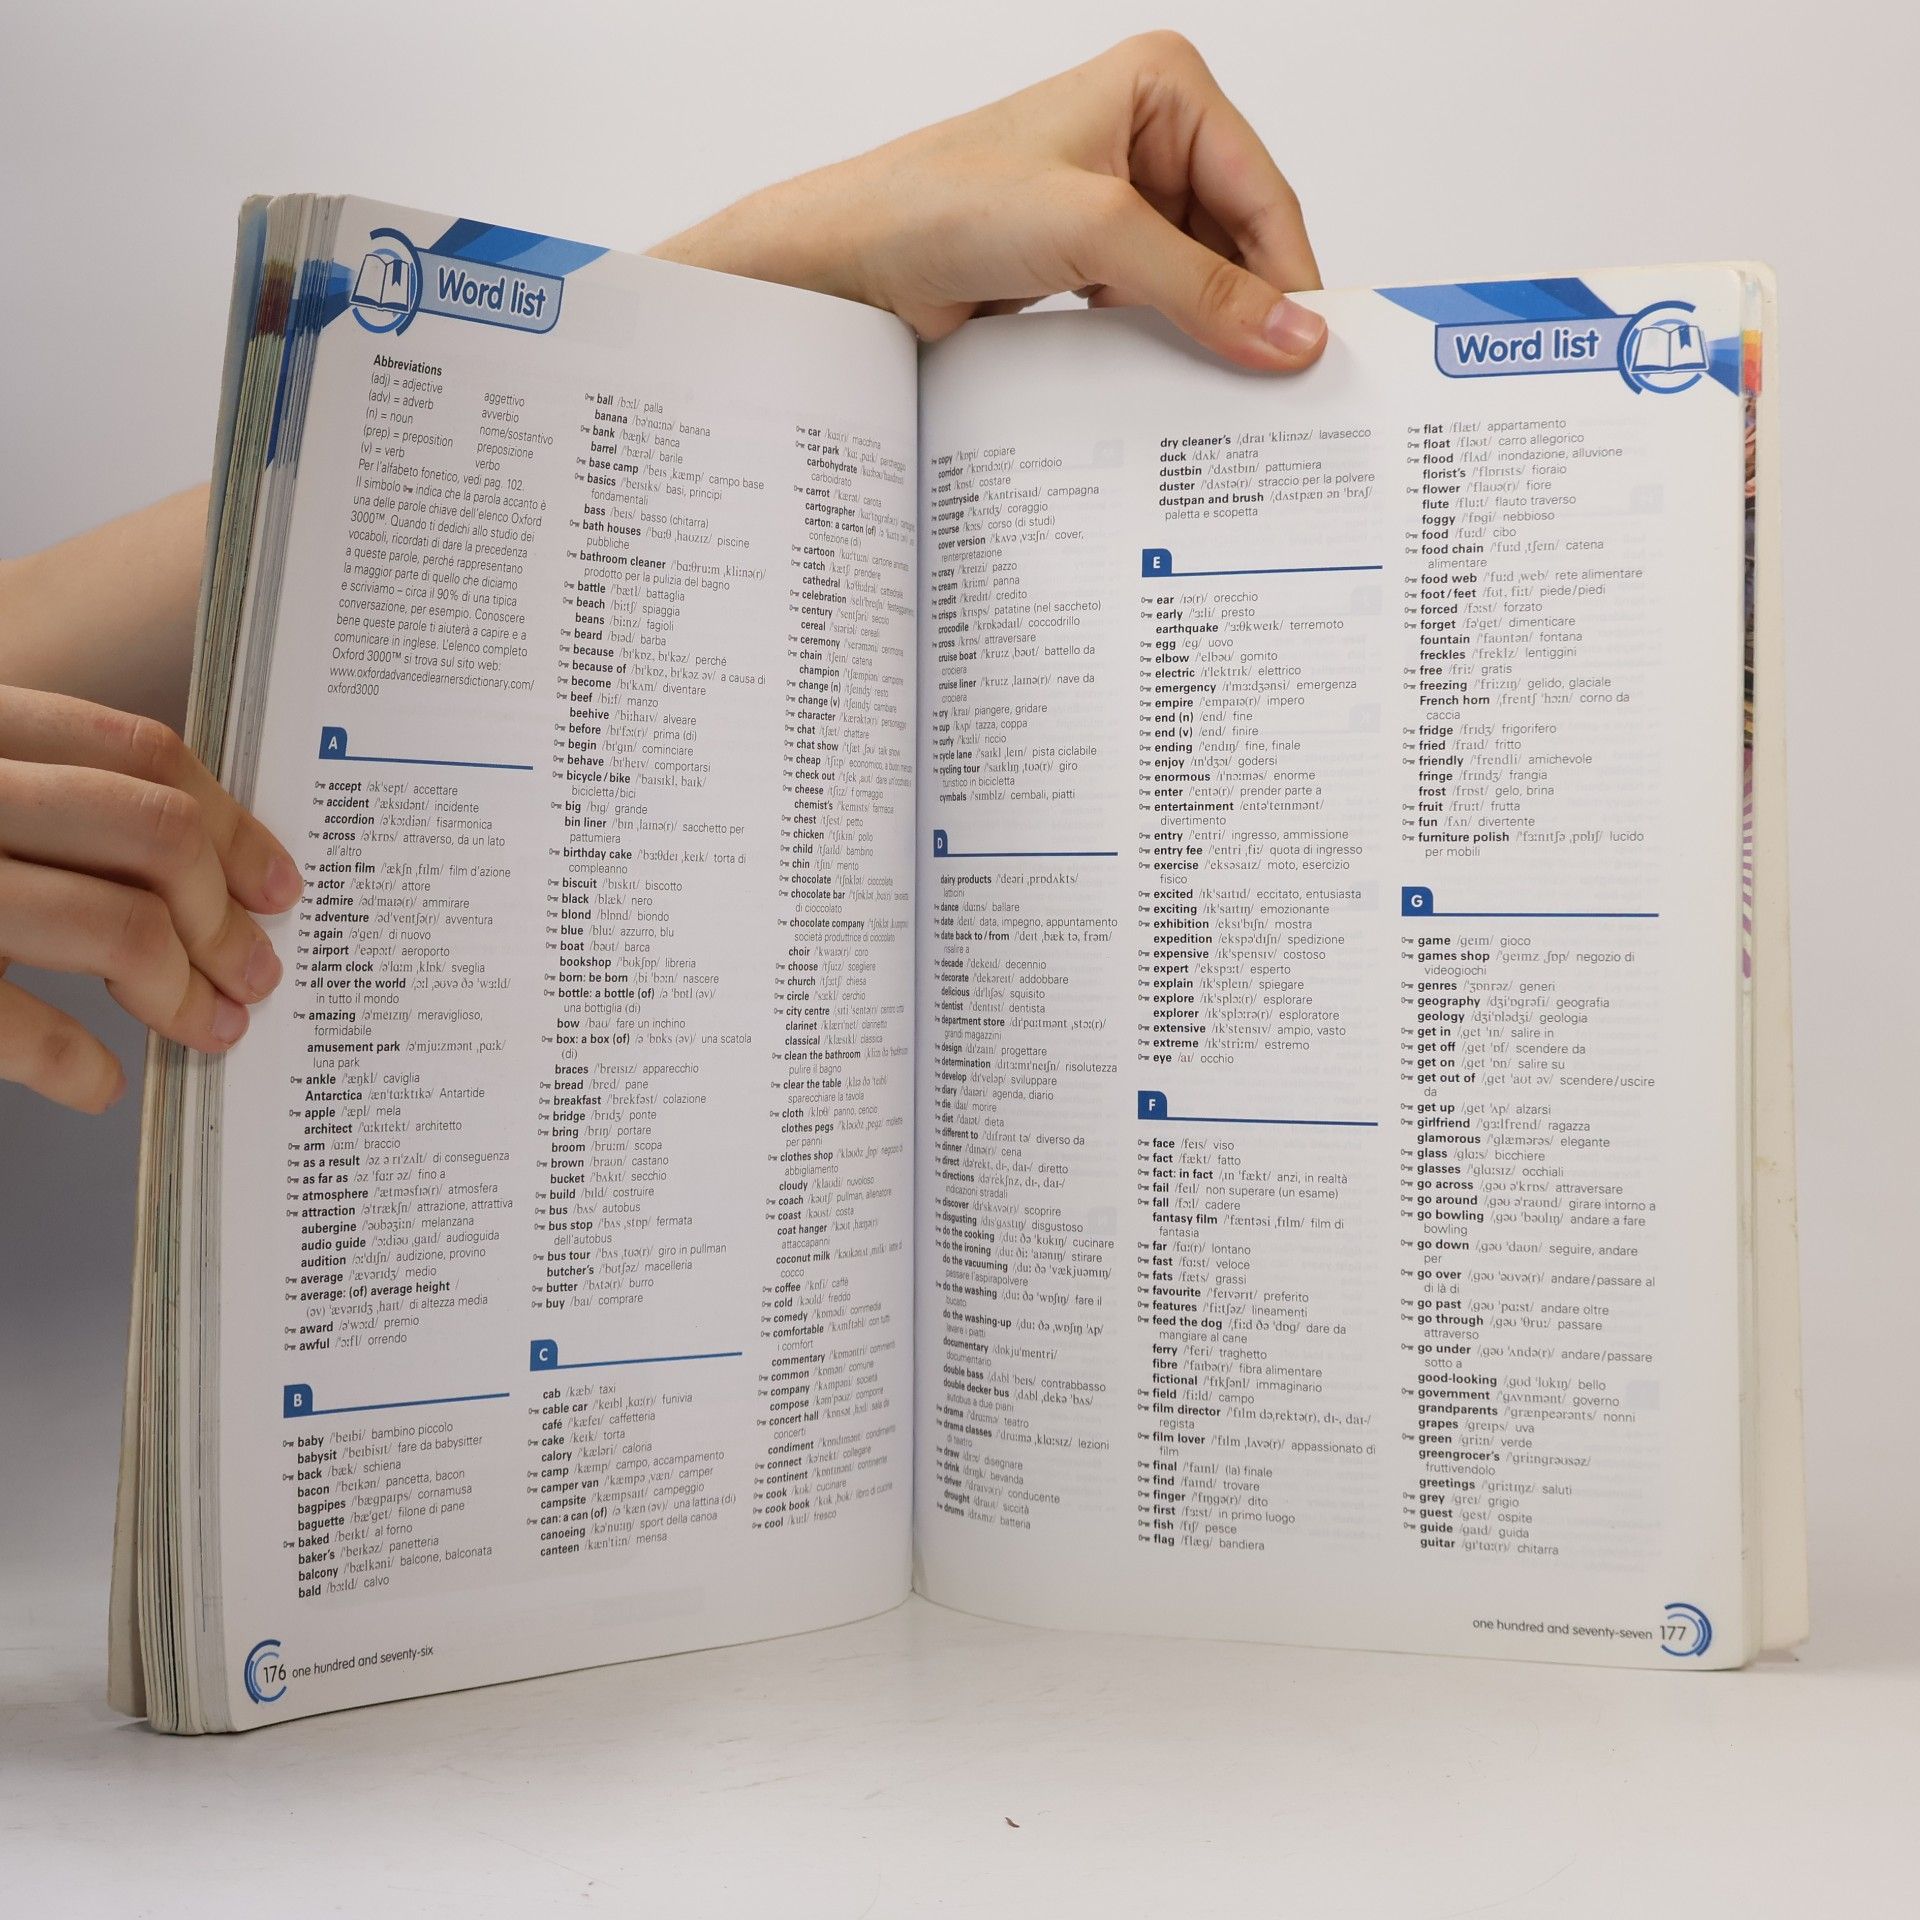 Word list
Abbreviations
(adj) = adjective aggettivo
(adv) = adverb avverbio
(n) = noun nome/sostantivo
(prep) = preposition preposizione
(v) = verb verbo
Per l'alfabeto fonetico, vedi pag. 102.
Il simbolo indica che la parola accanto è
una delle parole chiave dell'elenco Oxford
3000™. Quando ti dedichi allo studio dei
vocaboli, ricordati di dare la precedenza
a queste parole, perché rappresentano
la maggior parte di quello che diciamo
e scriviamo – circa il 90% di una tipica
conversazione, per esempio. Conoscere
bene queste parole ti aiuterà a capire e a
comunicare in inglese. L'elenco completo
Oxford 3000™ si trova sul sito web:
www.oxfordadvancedlearnersdictionary.com/
oxford3000
A
accept /ək'sept/ accettare
accident /'æksɪdənt/ incidente
accordion /ə'kɔːdiən/ fisarmonica
across /ə'krɒs/ attraverso, da un lato
all'altro
action film /'ækʃn ˌfɪlm/ film d'azione
actor /'æktə(r)/ attore
admire /əd'maɪə(r)/ ammirare
adventure /əd'ventʃə(r)/ avventura
again /ə'gen/ di nuovo
airport /'eəpɔːt/ aeroporto
alarm clock /ə'lɑːm ˌklɒk/ sveglia
all over the world /ˌɔːl ˌəʊvə ðə 'wɜːld/
in tutto il mondo
amazing /ə'meɪzɪŋ/ meraviglioso,
formidabile
amusement park /ə'mjuːzmənt ˌpɑːk/
luna park
ankle /'æŋkl/ caviglia
Antarctica /æn'tɑːktɪkə/ Antartide
apple /'æpl/ mela
architect /'ɑːkɪtekt/ architetto
arm /ɑːm/ braccio
as a result /əz ə rɪ'zʌlt/ di conseguenza
as far as /əz 'fɑːr əz/ fino a
atmosphere /'ætməsfɪə(r)/ atmosfera
attraction /ə'trækʃn/ attrazione, attrattiva
aubergine /'əʊbəʒiːn/ melanzana
audio guide /'ɔːdiəʊ ˌgaɪd/ audioguida
audition /ɔː'dɪʃn/ audizione, provino
average /'ævərɪdʒ/ medio
average: (of) average height /
(əv) 'ævərɪdʒ ˌhaɪt/ di altezza media
award /ə'wɔːd/ premio
awful /'ɔːfl/ orrendo
B
baby /'beɪbi/ bambino piccolo
babysit /'beɪbisɪt/ fare da babysitter
back /bæk/ schiena
bacon /'beɪkən/ pancetta, bacon
bagpipes /'bægpaɪps/ cornamusa
baguette /bæ'get/ filone di pane
baked /beɪkt/ al forno
baker's /'beɪkəz/ panetteria
balcony /'bælkəni/ balcone, balconata
bald /bɔːld/ calvo
ball /bɔːl/ palla
banana /bə'nɑːnə/ banana
bank /bæŋk/ banca
barrel /'bærəl/ barile
base camp /'beɪs ˌkæmp/ campo base
basics /'beɪsɪks/ basi, principi
fondamentali
bass /beɪs/ basso (chitarra)
bath houses /'bɑːθ ˌhaʊzɪz/ piscine
pubbliche
bathroom cleaner /'bɑːθruːm ˌkliːnə(r)/
prodotto per la pulizia del bagno
battle /'bætl/ battaglia
beach /biːtʃ/ spiaggia
beans /biːnz/ fagioli
beard /bɪəd/ barba
because /bɪ'kɒz, bɪ'kəz/ perché
because of /bɪ'kɒz, bɪ'kəz əv/ a causa di
become /bɪ'kʌm/ diventare
beef /biːf/ manzo
beehive /'biːhaɪv/ alveare
before /bɪ'fɔː(r)/ prima (di)
begin /bɪ'gɪn/ cominciare
behave /bɪ'heɪv/ comportarsi
bicycle / bike /'baɪsɪkl, baɪk/
bicicletta/bici
big /bɪg/ grande
bin liner /'bɪn ˌlaɪnə(r)/ sacchetto per
pattumiera
birthday cake /'bɜːθdeɪ ˌkeɪk/ torta di
compleanno
biscuit /'bɪskɪt/ biscotto
black /blæk/ nero
blond /blɒnd/ biondo
blue /bluː/ azzurro, blu
boat /bəʊt/ barca
bookshop /'bʊkʃɒp/ libreria
born: be born /ˌbi 'bɔːn/ nascere
bottle: a bottle (of) /ə 'bɒtl (əv)/
una bottiglia (di)
bow /baʊ/ fare un inchino
box: a box (of) /ə 'bɒks (əv)/ una scatola
(di)
braces /'breɪsɪz/ apparecchio
bread /bred/ pane
breakfast /'brekfəst/ colazione
bridge /brɪdʒ/ ponte
bring /brɪŋ/ portare
broom /bruːm/ scopa
brown /braʊn/ castano
bucket /'bʌkɪt/ secchio
build /bɪld/ costruire
bus /bʌs/ autobus
bus stop /'bʌs ˌstɒp/ fermata
dell'autobus
bus tour /'bʌs ˌtʊə(r)/ giro in pullman
butcher's /'bʊtʃəz/ macelleria
butter /'bʌtə(r)/ burro
buy /baɪ/ comprare
C
cab /kæb/ taxi
cable car /'keɪbl ˌkɑː(r)/ funivia
café /'kæfeɪ/ caffetteria
cake /keɪk/ torta
calory /'kæləri/ caloria
camp /kæmp/ campo, accampamento
camper van /'kæmpə ˌvæn/ camper
campsite /'kæmpsaɪt/ campeggio
can: a can (of) /ə 'kæn (əv)/ una lattina (di)
canoeing /kə'nuːɪŋ/ sport della canoa
canteen /kæn'tiːn/ mensa
car /kɑː(r)/ macchina
car park /'kɑː ˌpɑːk/ parcheggio
carbohydrate
carboidrato
carrot /'kærət/ carota
cartographer
carton: a carton (of)
confezione (di)
cartoon /kɑː'tuːn/ cartone animato
catch /kætʃ/ prendere
cathedral /kə'θiːdrəl/ cattedrale
celebration
century /'sentʃəri/ secolo
cereal /'sɪəriəl/ cereali
ceremony /'serəməni/ cerimonia
chain /tʃeɪn/ catena
champion /'tʃæmpiən/ campione
change (n) /tʃeɪndʒ/ resto
change (v) /tʃeɪndʒ/ cambiare
character /'kærəktə(r)/ personaggio
chat /tʃæt/ chattare
chat show /'tʃæt ˌʃəʊ/ talk show
cheap /tʃiːp/ economico, a buon
check out /'tʃek ˌaʊt/ dare un'occhiata
cheese /tʃiːz/ formaggio
chemist's /'kemɪsts/ farmacia
chest /tʃest/ petto
chicken /'tʃɪkɪn/ pollo
child /tʃaɪld/ bambino
chin /tʃɪn/ mento
chocolate /'tʃɒklət/ cioccolata
chocolate bar /'tʃɒklət ˌbɑː(r)/ tavoletta
di cioccolato
chocolate company
società produttrice di cioccolato
choir /'kwaɪə(r)/ coro
choose /tʃuːz/ scegliere
church /tʃɜːtʃ/ chiesa
circle /'sɜːkl/ cerchio
city centre /ˌsɪti 'sentə(r)/ centro città
clarinet /klærɪ'net/ clarinetto
classical /'klæsɪkl/ classica
clean the bathroom
pulire il bagno
clear the table
sparecchiare la tavola
cloth /klɒθ/ panno, cencio
clothes pegs /'kləʊðz ˌpegz/ mollette
per panni
clothes shop /'kləʊðz ˌʃɒp/ negozio di
abbigliamento
cloudy /'klaʊdi/ nuvoloso
coach /kəʊtʃ/ pullman, allenatore
coast /kəʊst/ costa
coat hanger /'kəʊt ˌhæŋə(r)/
attaccapanni
coconut milk /'kəʊkənʌt ˌmɪlk/ latte di
cocco
coffee /'kɒfi/ caffè
cold /kəʊld/ freddo
comedy /'kɒmədi/ commedia
comfortable /'kʌmftəbl/ con tutti
i comfort
commentary /'kɒməntri/ commenti
common /'kɒmən/ comune
company /'kʌmpəni/ società
compose /kəm'pəʊz/ comporre
concert hall /'kɒnsət ˌhɔːl/ sala da
concerti
condiment /'kɒndɪmənt/ condimento
connect /kə'nekt/ collegare
continent /'kɒntɪnənt/ continente
cook /kʊk/ cucinare
cook book /'kʊk ˌbʊk/ libro di cucina
cool /kuːl/ fresco
176 one hundred and seventy-six
Word list
copy /'kɒpi/ copiare
corridor /'kɒrɪdɔː(r)/ corridoio
cost /kɒst/ costare
countryside /'kʌntrisaɪd/ campagna
courage /'kʌrɪdʒ/ coraggio
course /kɔːs/ corso (di studi)
cover version /'kʌvə ˌvɜːʃn/ cover,
reinterpretazione
crazy /'kreɪzi/ pazzo
cream /kriːm/ panna
credit /'kredɪt/ credito
crisps /krɪsps/ patatine (nel sacchetto)
crocodile /'krɒkədaɪl/ coccodrillo
cross /krɒs/ attraversare
cruise boat /'kruːz ˌbəʊt/ battello da
crociera
cruise liner /'kruːz ˌlaɪnə(r)/ nave da
crociera
cry /kraɪ/ piangere, gridare
cup /kʌp/ tazza, coppa
curly /'kɜːli/ riccio
cycle lane /'saɪkl ˌleɪn/ pista ciclabile
cycling tour /'saɪklɪŋ ˌtʊə(r)/ giro
turistico in bicicletta
cymbals /'sɪmblz/ cembali, piatti
D
dairy products /'deəri ˌprɒdʌkts/
latticini
dance /dɑːns/ ballare
date /deɪt/ data, impegno, appuntamento
date back to / from /'deɪt ˌbæk tə, frəm/
risalire a
decade /'dekeɪd/ decennio
decorate /'dekəreɪt/ addobbare
delicious /dɪ'lɪʃəs/ squisito
dentist /'dentɪst/ dentista
department store /dɪ'pɑːtmənt ˌstɔː(r)/
grandi magazzini
design /dɪ'zaɪn/ progettare
determination /dɪtɜːmɪ'neɪʃn/ risolutezza
develop /dɪ'veləp/ sviluppare
diary /'daɪəri/ agenda, diario
die /daɪ/ morire
diet /'daɪət/ dieta
different to /'dɪfrənt tə/ diverso da
dinner /'dɪnə(r)/ cena
direct /də'rekt, dɪ-, daɪ-/ diretto
directions /də'rekʃnz, dɪ-, daɪ-/
indicazioni stradali
discover /dɪ'skʌvə(r)/ scoprire
disgusting /dɪs'gʌstɪŋ/ disgustoso
do the cooking /ˌduː ðə 'kʊkɪŋ/ cucinare
do the ironing /ˌduː ðiː 'aɪənɪŋ/ stirare
do the vacuuming /ˌduː ðə 'vækjuəmɪŋ/
passare l'aspirapolvere
do the washing /ˌduː ðə 'wɒʃɪŋ/ fare il
bucato
do the washing-up /ˌduː ðə ˌwɒʃɪŋ 'ʌp/
lavare i piatti
documentary /dɒkju'mentri/
documentario
double bass /ˌdʌbl 'beɪs/ contrabbasso
double decker bus /ˌdʌbl ˌdekə 'bʌs/
autobus a due piani
drama /'drɑːmə/ teatro
drama classes /'drɑːmə ˌklɑːsɪz/ lezioni
di teatro
draw /drɔː/ disegnare
drink /drɪŋk/ bevanda
driver /'draɪvə(r)/ conducente
drought /draʊt/ siccità
drums /drʌmz/ batteria
dry cleaner's /ˌdraɪ 'kliːnəz/ lavasecco
duck /dʌk/ anatra
dustbin /'dʌstbɪn/ pattumiera
duster /'dʌstə(r)/ straccio per la polvere
dustpan and brush /ˌdʌstpæn ən 'brʌʃ/
paletta e scopetta
E
ear /ɪə(r)/ orecchio
early /'ɜːli/ presto
earthquake /'ɜːθkweɪk/ terremoto
egg /eg/ uovo
elbow /'elbəʊ/ gomito
electric /ɪ'lektrɪk/ elettrico
emergency /ɪ'mɜːdʒənsi/ emergenza
empire /'empaɪə(r)/ impero
end (n) /end/ fine
end (v) /end/ finire
ending /'endɪŋ/ fine, finale
enjoy /ɪn'dʒɔɪ/ godersi
enormous /ɪ'nɔːməs/ enorme
enter /'entə(r)/ prender parte a
entertainment /entə'teɪnmənt/
divertimento
entry /'entri/ ingresso, ammissione
entry fee /'entri ˌfiː/ quota di ingresso
exercise /'eksəsaɪz/ moto, esercizio
fisico
excited /ɪk'saɪtɪd/ eccitato, entusiasta
exciting /ɪk'saɪtɪŋ/ emozionante
exhibition /eksɪ'bɪʃn/ mostra
expedition /ekspə'dɪʃn/ spedizione
expensive /ɪk'spensɪv/ costoso
expert /'ekspɜːt/ esperto
explain /ɪk'spleɪn/ spiegare
explore /ɪk'splɔː(r)/ esplorare
explorer /ɪk'splɔːrə(r)/ esploratore
extensive /ɪk'stensɪv/ ampio, vasto
extreme /ɪk'striːm/ estremo
eye /aɪ/ occhio
F
face /feɪs/ viso
fact /fækt/ fatto
fact: in fact /ˌɪn 'fækt/ anzi, in realtà
fail /feɪl/ non superare (un esame)
fall /fɔːl/ cadere
fantasy film /'fæntəsi ˌfɪlm/ film di
fantasia
far /fɑː(r)/ lontano
fast /fɑːst/ veloce
fats /fæts/ grassi
favourite /'feɪvərɪt/ preferito
features /'fiːtʃəz/ lineamenti
feed the dog /ˌfiːd ðə 'dɒg/ dare da
mangiare al cane
ferry /'feri/ traghetto
fibre /'faɪbə(r)/ fibra alimentare
fictional /'fɪkʃənl/ immaginario
field /fiːld/ campo
film director /'fɪlm dəˌrektə(r), dɪ-, daɪ-/
regista
film lover /'fɪlm ˌlʌvə(r)/ appassionato di
film
final /'faɪnl/ (la) finale
find /faɪnd/ trovare
finger /'fɪŋgə(r)/ dito
first /fɜːst/ in primo luogo
fish /fɪʃ/ pesce
flag /flæg/ bandiera
flat /flæt/ appartamento
float /fləʊt/ carro allegorico
flood /flʌd/ inondazione, alluvione
florist's /'flɒrɪsts/ fioraio
flower /'flaʊə(r)/ fiore
flute /fluːt/ flauto traverso
foggy /'fɒgi/ nebbioso
food /fuːd/ cibo
food chain /'fuːd ˌtʃeɪn/ catena
alimentare
food web /'fuːd ˌweb/ rete alimentare
foot / feet /fʊt, fiːt/ piede/piedi
forced /fɔːst/ forzato
forget /fə'get/ dimenticare
fountain /'faʊntən/ fontana
freckles /'freklz/ lentiggini
free /friː/ gratis
freezing /'friːzɪŋ/ gelido, glaciale
French horn /ˌfrentʃ 'hɔːn/ corno da
caccia
fridge /frɪdʒ/ frigorifero
fried /fraɪd/ fritto
friendly /'frendli/ amichevole
fringe /frɪndʒ/ frangia
frost /frɒst/ gelo, brina
fruit /fruːt/ frutta
fun /fʌn/ divertente
furniture polish /'fɜːnɪtʃə ˌpɒlɪʃ/ lucido
per mobili
G
game /geɪm/ gioco
games shop /'geɪmz ˌʃɒp/ negozio di
videogiochi
genres /'ʒɒnrəz/ generi
geography /dʒi'ɒgrəfi/ geografia
geology /dʒi'ɒlədʒi/ geologia
get in /ˌget 'ɪn/ salire in
get off /ˌget 'ɒf/ scendere da
get on /ˌget 'ɒn/ salire su
get out of /ˌget 'aʊt əv/ scendere/uscire
da
get up /ˌget 'ʌp/ alzarsi
girlfriend /'gɜːlfrend/ ragazza
glamorous /'glæmərəs/ elegante
glass /glɑːs/ bicchiere
glasses /'glɑːsɪz/ occhiali
go across /ˌgəʊ ə'krɒs/ attraversare
go around /ˌgəʊ ə'raʊnd/ girare intorno a
go bowling /ˌgəʊ 'bəʊlɪŋ/ andare a fare
bowling
go down /ˌgəʊ 'daʊn/ seguire, andare
per
go over /ˌgəʊ 'əʊvə(r)/ andare/passare al
di là di
go past /ˌgəʊ 'pɑːst/ andare oltre
go through /ˌgəʊ 'θruː/ passare
attraverso
go under /ˌgəʊ 'ʌndə(r)/ andare/passare
sotto a
good-looking /ˌgʊd 'lʊkɪŋ/ bello
government /'gʌvnmənt/ governo
grandparents /'grænpeərənts/ nonni
grapes /greɪps/ uva
green /griːn/ verde
greengrocer's /'griːngrəʊsəz/
fruttivendolo
greetings /'griːtɪŋz/ saluti
grey /greɪ/ grigio
guest /gest/ ospite
guide /gaɪd/ guida
guitar /gɪ'tɑː(r)/ chitarra
one hundred and seventy-seven 177